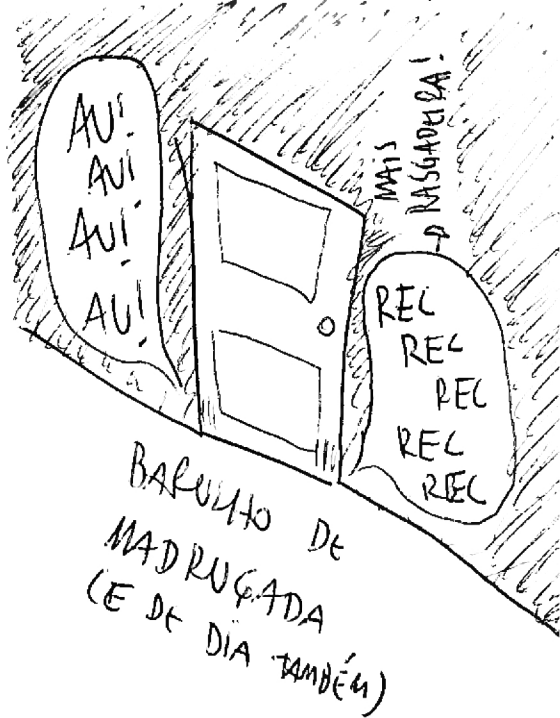 AU!
AU!
AU!
AU!
MAIS
RASGADEIRA!
REC
REC
REC
REC
REC
BARULHO DE
MADRUGADA
(E DE DIA TAMBÉM)